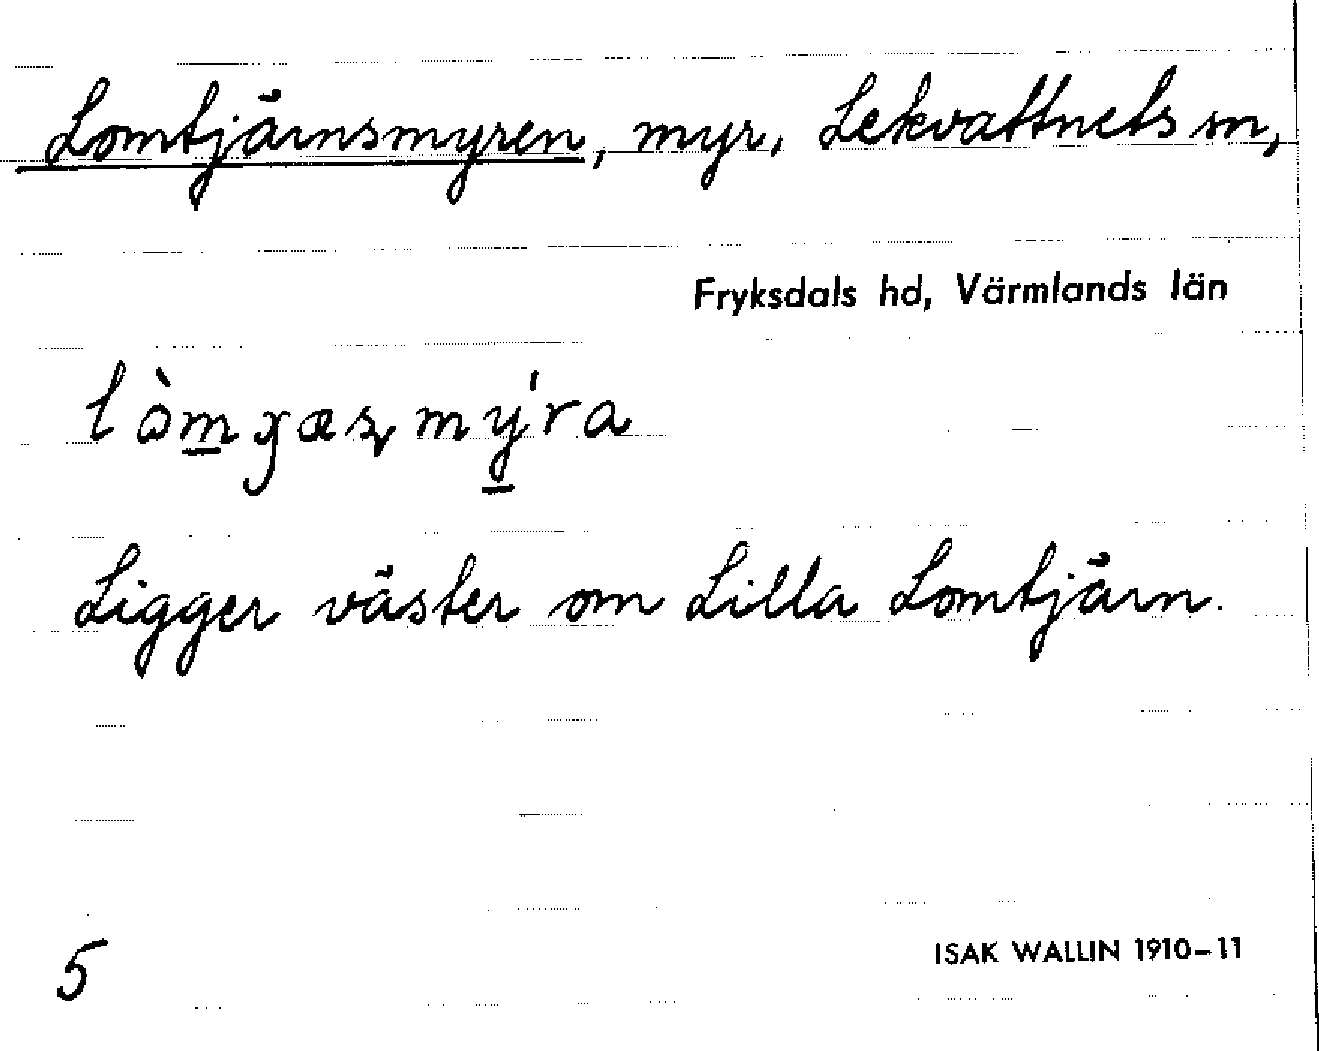 Lomtjärnsmyren, myr, Lekvattnets sn,
Fryksdals hd, Värmlands län
Ligger väster om Lilla Lomtjärn.
5
ISAK WALLIN 1910-11